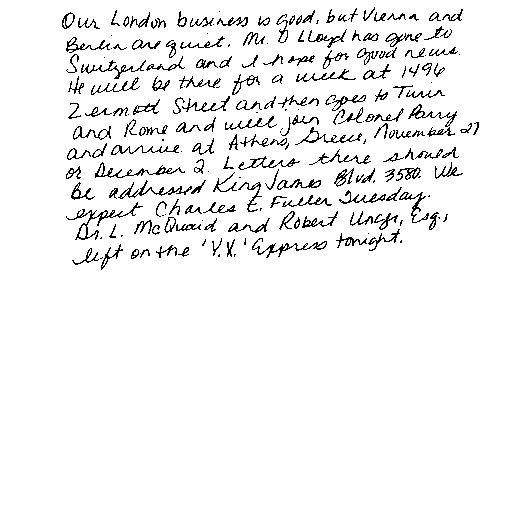 Our London business is good, but Vienna and
Berlin are quiet. Mr. D Lloyd has gone to
Switzerland and I hope for good news.
He will be there for a week at 1496
Zermott Street and then goes to Turin
and Rome and will join Colonel Parry
and arrive at Athens, Greece, November 27
or December 2. Letters there should
be addressed King James Blvd. 3580. We
expect Charles E. Fuller Tuesday.
Dr. L. McQuaid and Robert Unger, Esq.,
left on the 'Y.X.' Express tonight.